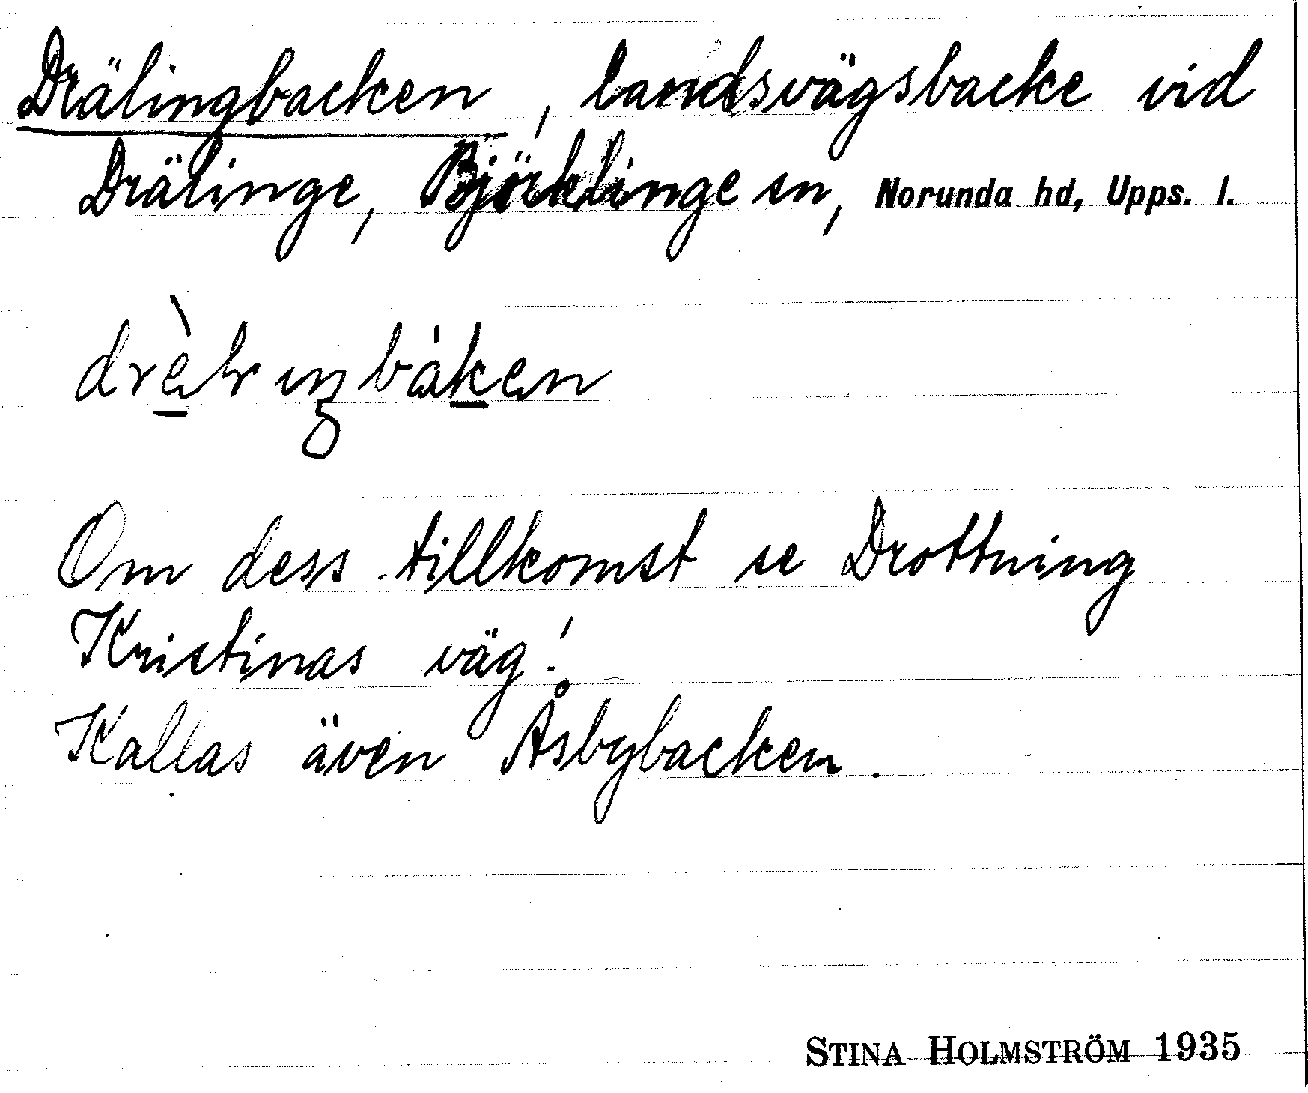 Drälingbacken, landsvägsbacke vid
Drälinge, Björklinge sn, Norunda hd, Upps. l.
Om dess tillkomst se Drottning
Kristinas väg!
Kallas även Åsbybacken.
STINA HOLMSTRÖM 1935